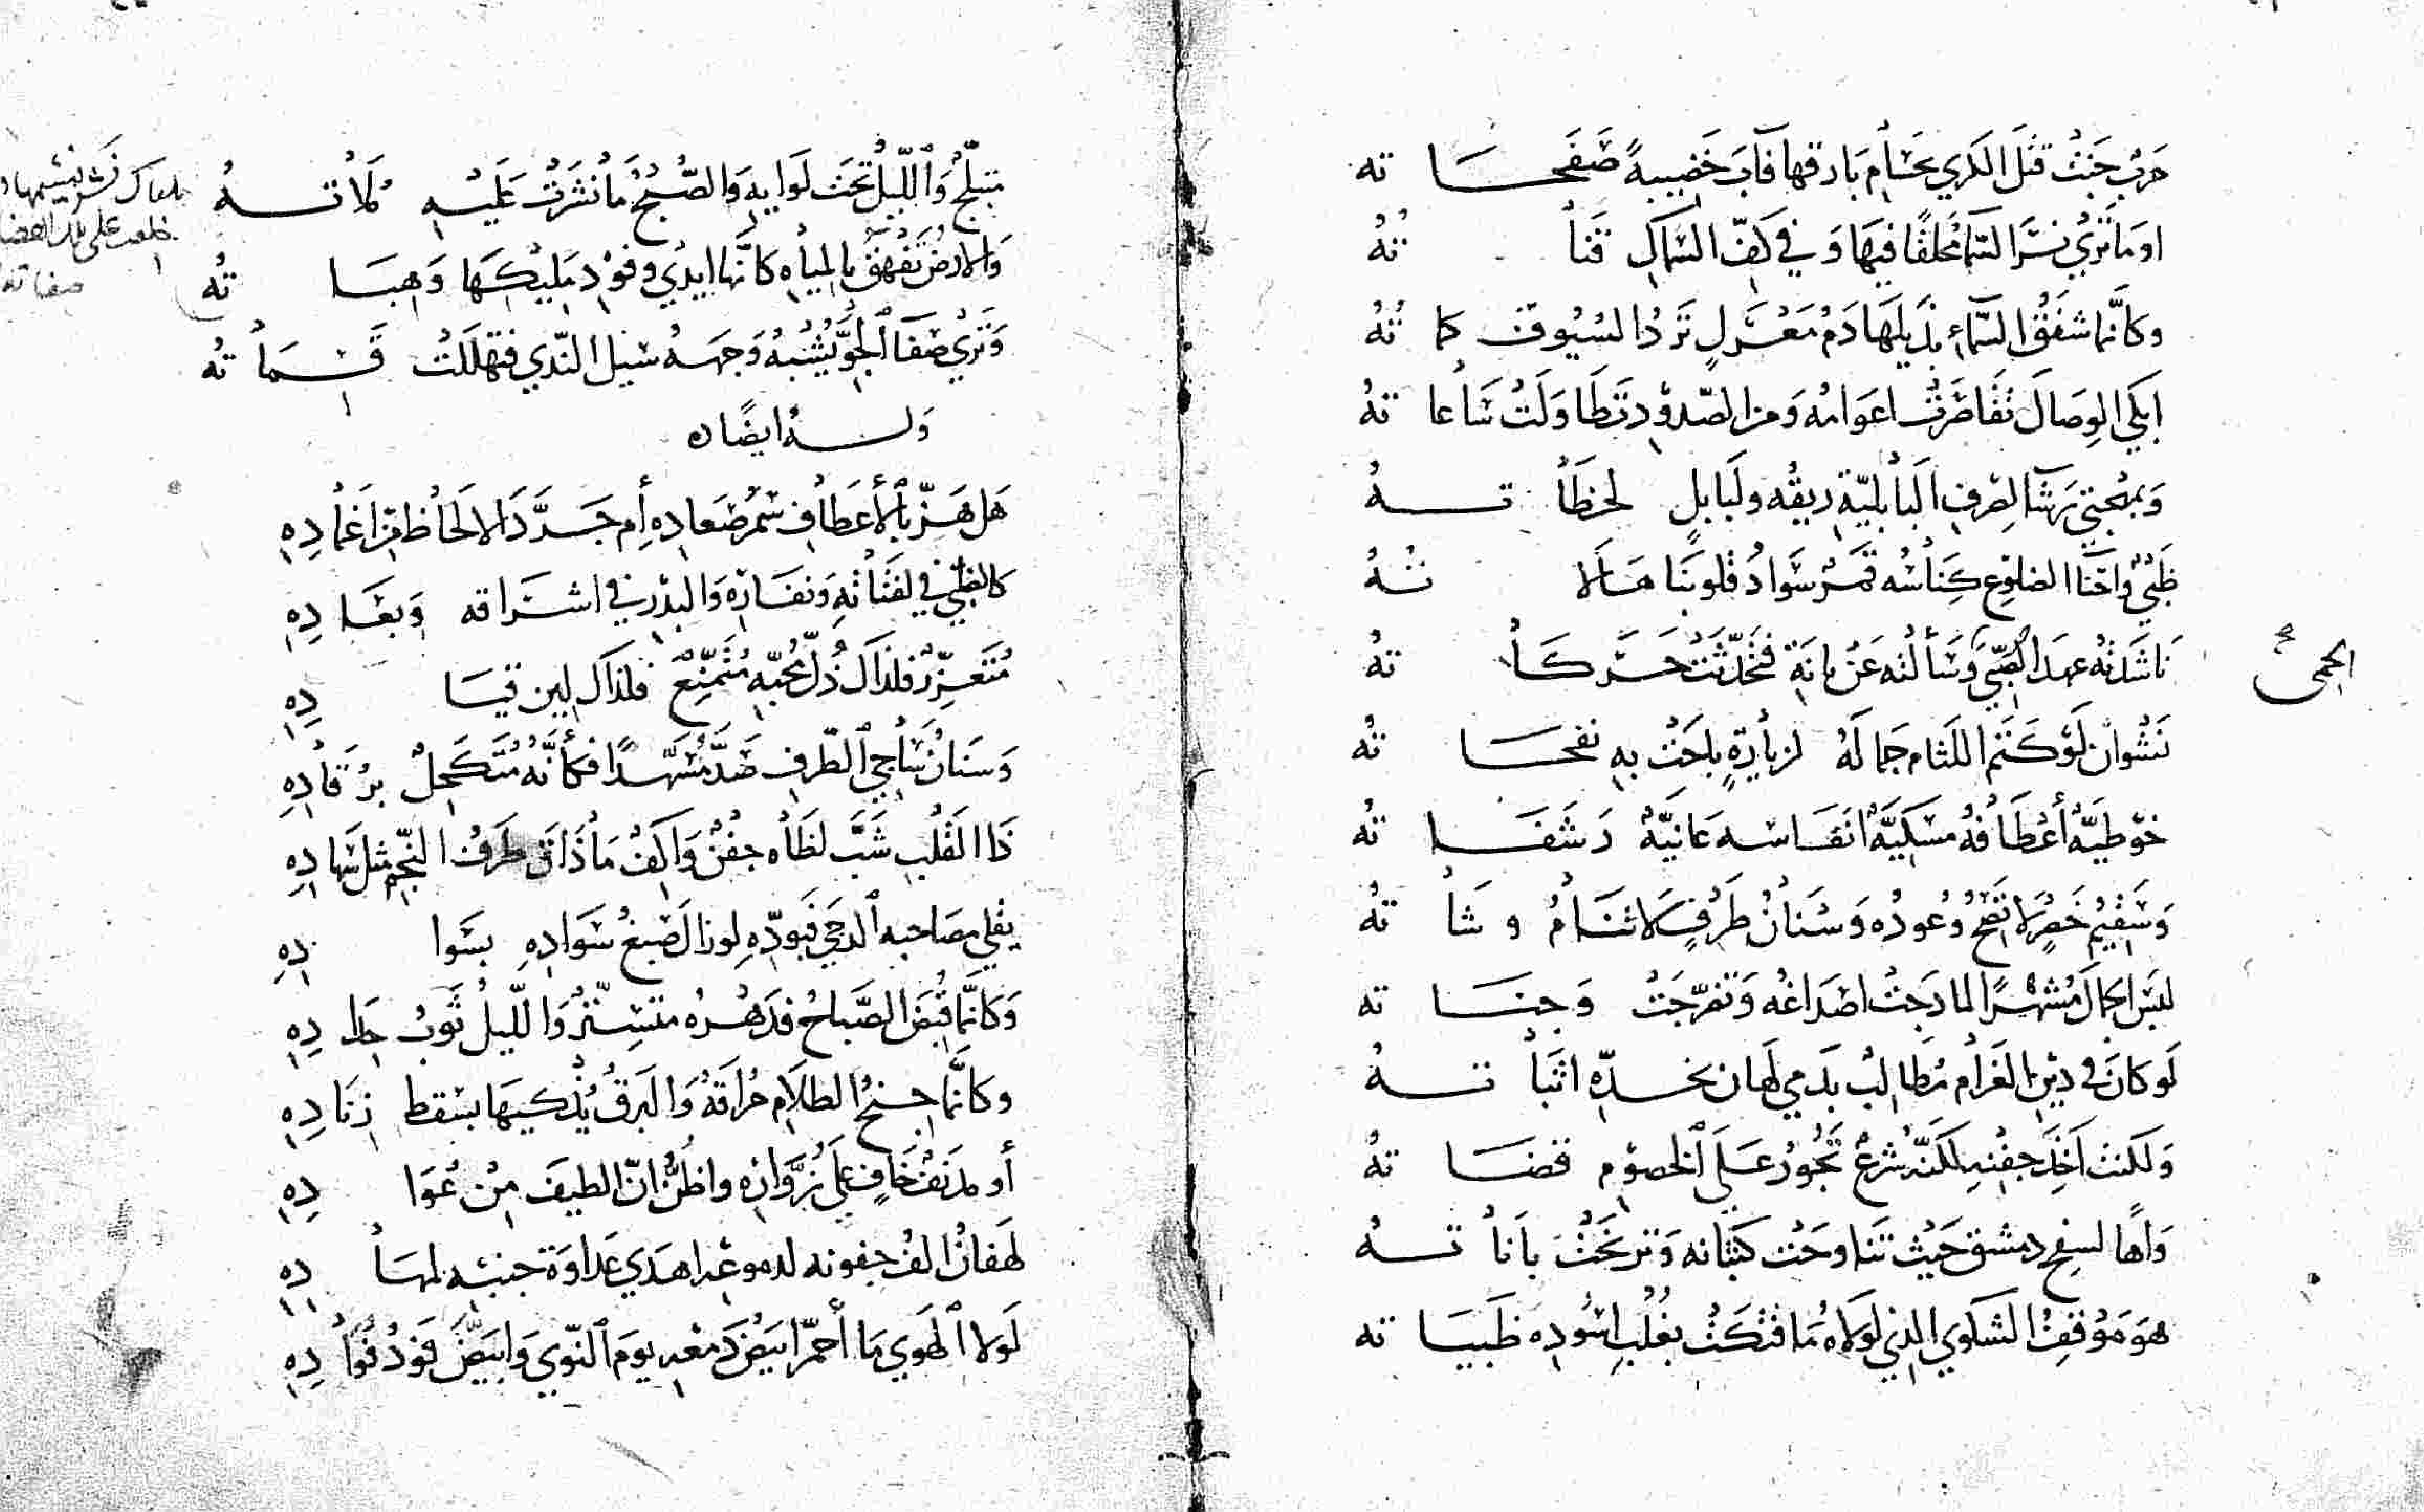 حَرْبٍ جَنَتْ قتْل الكَرى بحُسَام بَارقها فآبَ خَضِيبةً صَفَحــاته
اوَمَا تَرَى نسْرَ السّما مُحَلقًا فيهَا وَفي كَفّ السِّماكِ قَنَاتُهُ
وكأنّما شفَقُ السّماءِ بذيلهَا دَمُ مَعْرَكٍ تَرَدُ السُيُوف كماتُهُ
ابكي الوِصَالَ تَقَاصَرَتْ اعوَامُه وَمن الصّدوْد تَطَاوَلَتْ سَاعاتهُ
وَبمُهْجَتي رَشَأ لِصرفِ البَابليّةِ ريقُه ولبَابلٍ لحَظَاتــهُ
ظَبْيٌ وَاحْنَاءُ الضلوع كِنَاسُه قَمَرٌ سَوادُ قلوبنَا هَالَاتُهُ
نَاشَدتُه عهدَ الصِّبَى وَسَألتُه عَنْ بانَةٍ فتَحَدّثَتْ حَرَكَاتهُ
الحمى
نَشْوان لَوْ كَتَم اللثام جَمالَهُ لزيادَةٍ باحَتْ بهِ نفحَــاته
خوْطيّةٌ أعْطَافُهُ مسكيّةٌ انفَاسه عَانيّةٌ رَشفَــاته
وَسَقيْمُ خَصْرٍ لا تَصحّ وُعودُه وَسْنَانُ طَرْفٍ لا تنَامُ وشَاتهُ
لبسَ الجمالَ مُشهّرًا لما دَجتْ اصْدَاغُه وَتضرّجَتْ وَجنَــاته
لَو كانَ في ديْن الغَرَام مُطالبٌ بدَمي لهَان بخدّه اثبَاتــهُ
وَلَكنتُ آخُذ جفْنه لكنّه شرْعٌ تجُورُ عَلَى الخصوْم قضَــاتهُ
وَاهًا لسفح دمشق حَيْث تَنَاوحَتْ كثبَانه وَترنّحَتْ بَانَاتــهُ
هوَ مَوْقفُ الشكوى الذي لولَاهُ مَا فتكَتْ بغُلْبِ اسُودِه ظَبيَــاته
متبلّجٌ وَاللّيلُ تحْتَ لوَايهِ وَالصّبْحُ مَا نُشِرَتْ عَلَيْــهِ مُلَاتــهُ
وَالارضُ تَفْهَقُ بالميَاهِ كأنّها ايدي وفوْد مَليْكهَا وَهِبَــاتُه
وَترَى صَفَاءَ الجوّ يُشْبهُ وَجهَــهُ سُيل النّدى فتهلّلَتْ قَسَمَاتُه
وَلــهُ ايضًا ٥
هَل هَزّ بالأعْطَاف سُمْرَ صعادِهِ أم جَرّدَ الالحَاظَ من اَغمادِهِ
كالظّبْي في لفَتَاتهِ وَنفَارِهِ وَالبدْر في اشرَاقه وَبعَــادِهِ
مُتَعزّزٌ فلذاكَ ذُلّ مُحبّهِ مُتَمنّعٌ فلذاكَ لين قيَــادِهِ
وَسنَانُ سَاجي الطّرفِ صَدّ مُسَهّدًا فكأنّهُ مُتَكحِّلٌ برُقَادِهِ
ذَا القَلْبِ شَبّ لظَاه جفْنٌ وَاكفٌ مَا ذَاقَ طَرفُ النّجم مثل سهادِهِ
يقلي مصَاحبه الدجى فَيودّه لو زالَ صبغُ سَوَادِهِ بسَوادِهِ
وَكأنّما قبَضَ الصّباحُ فدَهْره متسِتّرٌ وَاللّيلُ ثَوبُ حدادِهِ
وكأنّما جنحُ الظلَامِ حُراقَةٌ وَالبرقُ يُذكيهَا بسَقط زنَادِهِ
أو مدنَفٌ خَافٍ على زُوّارِهِ واظُنّ انّ الطيفَ مِنْ عُوّادِهِ
لهَفانُ الفُ جفونه لدموعه اهدَى عَداوَة جنبه لمهَــادِهِ
لَولا الهَوى مَا أحمرّ ابيَضُ دَمْعه يومَ النّوى وَابيضّ فَودُ فُؤَادِهِ